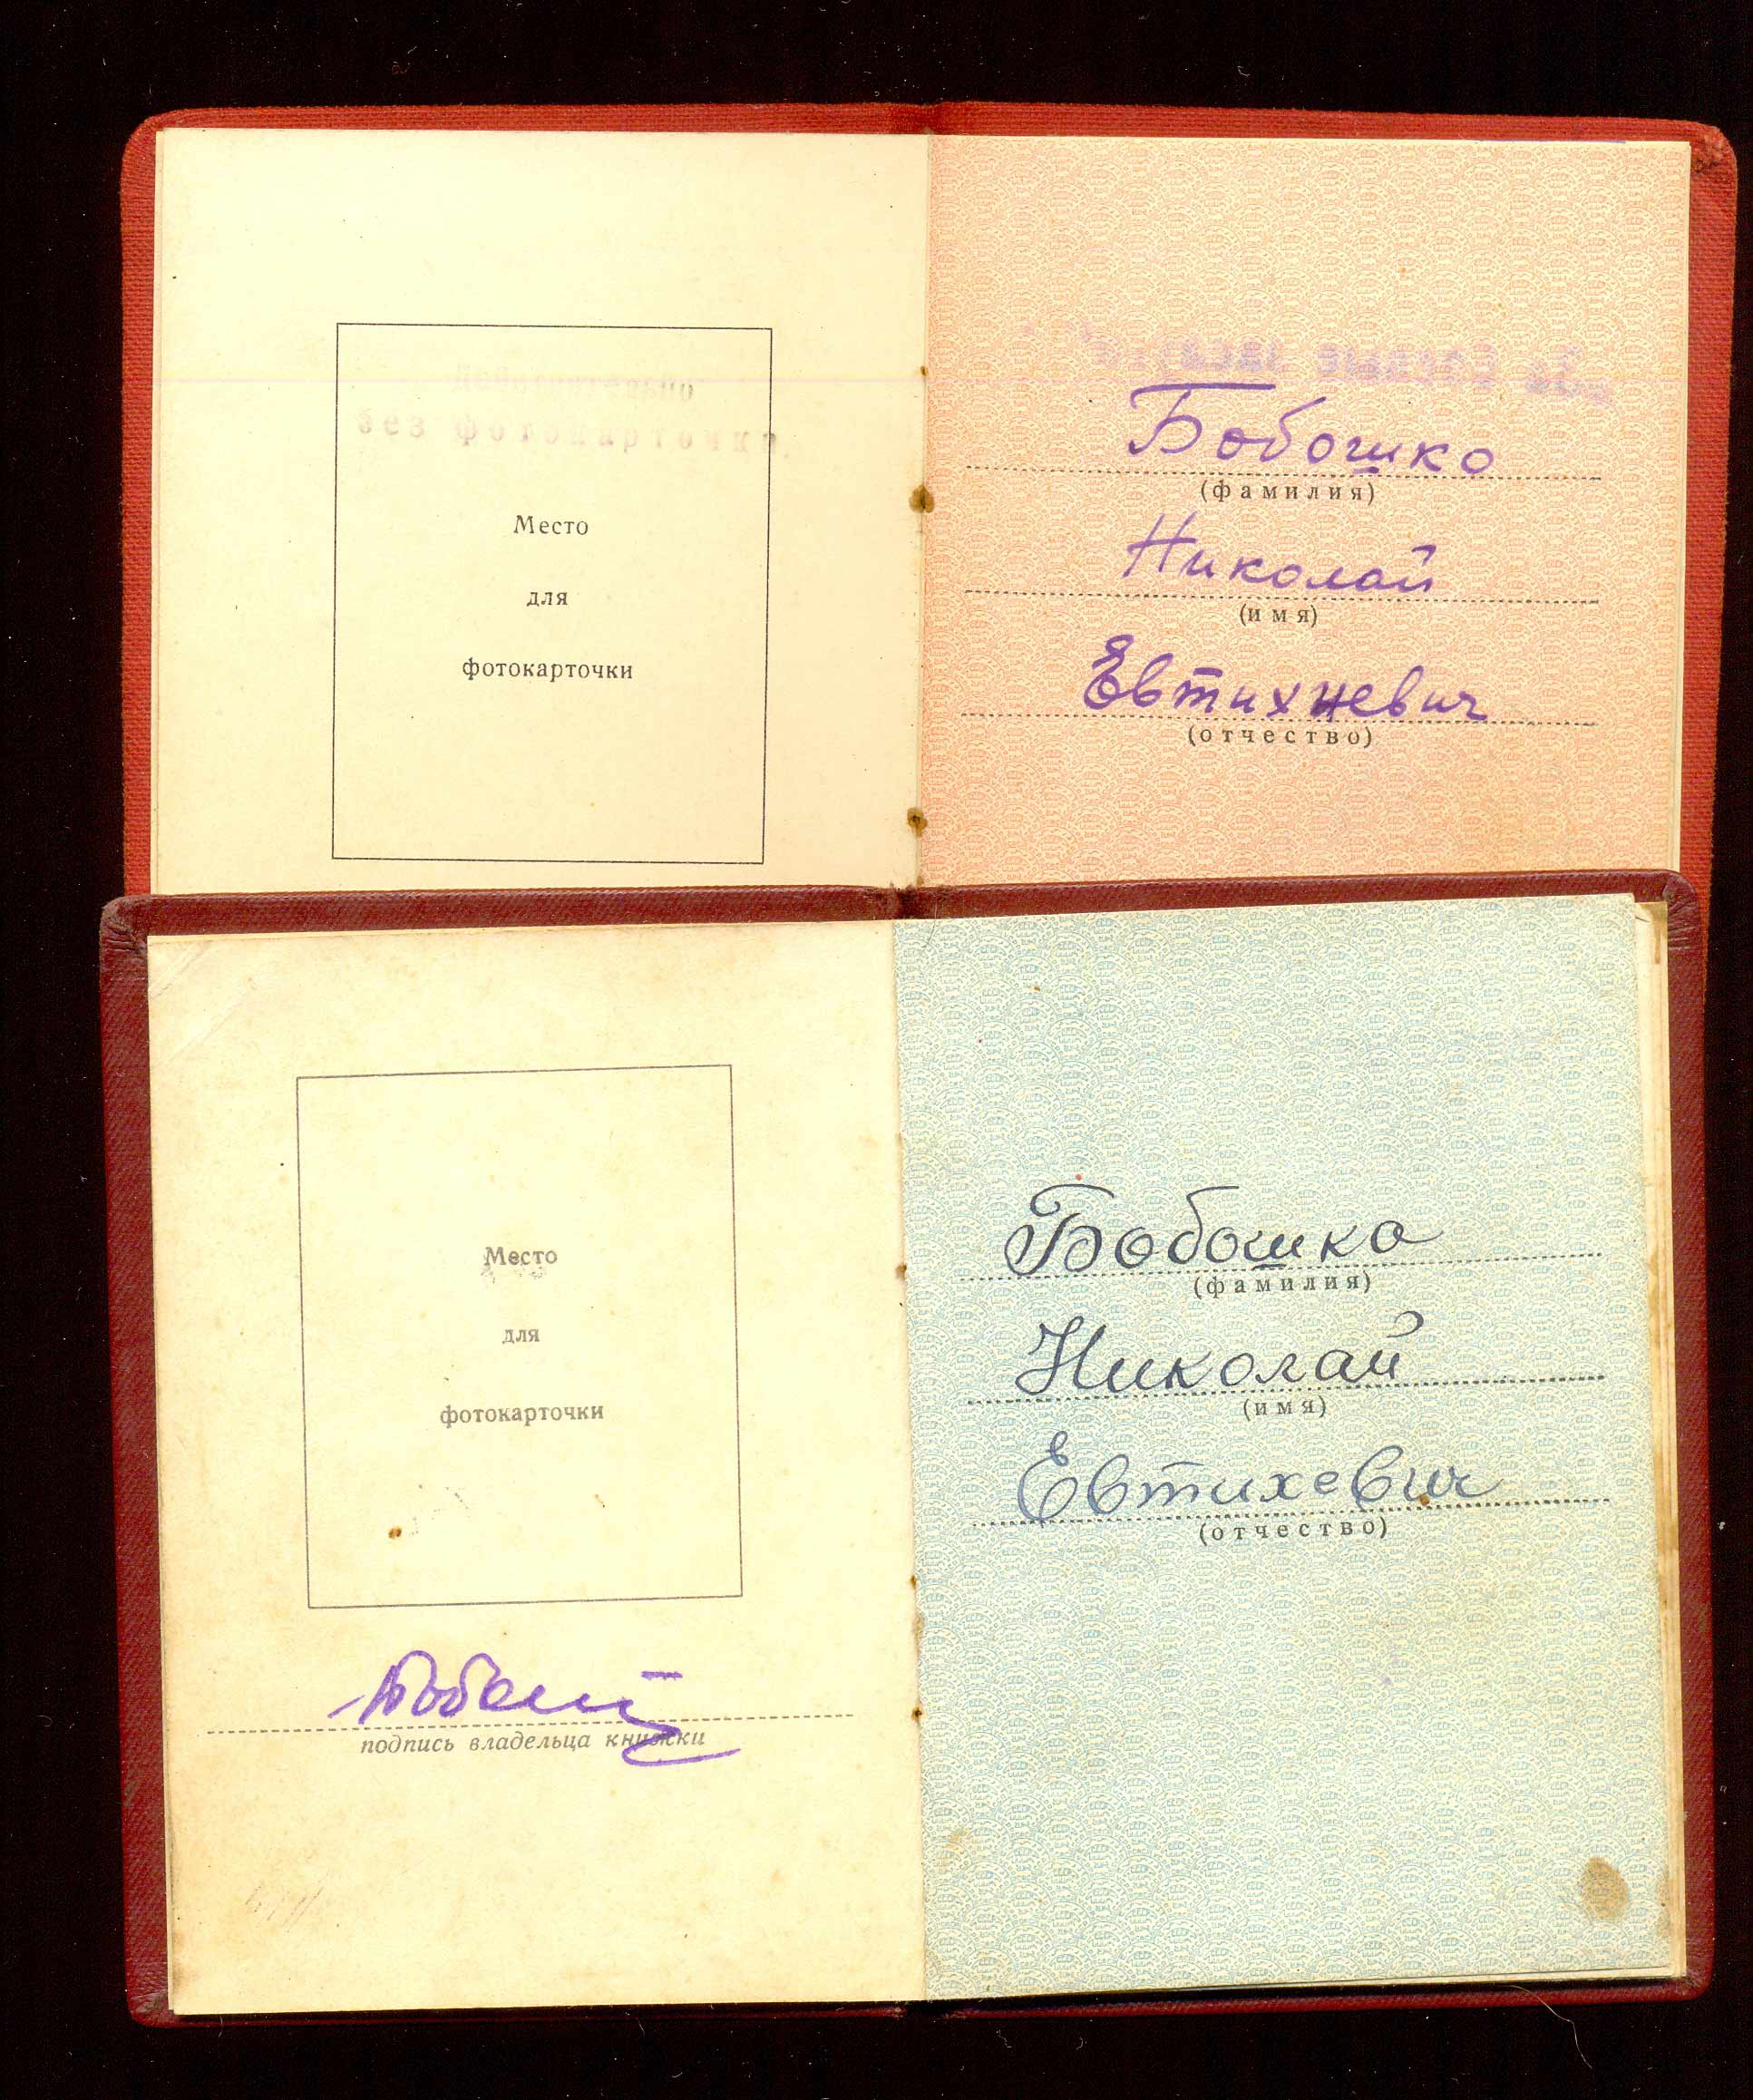 Действительно
без фотокарточки
Место
для
фотокарточки
„За боевые заслуги"
Бобошко
(фамилия)
Николай
(имя)
Евтихиевич
(отчество)
Место
для
фотокарточки
подпись владельца книжки
Бобошко
(фамилия)
Николай
(имя)
Евтихевич
(отчество)